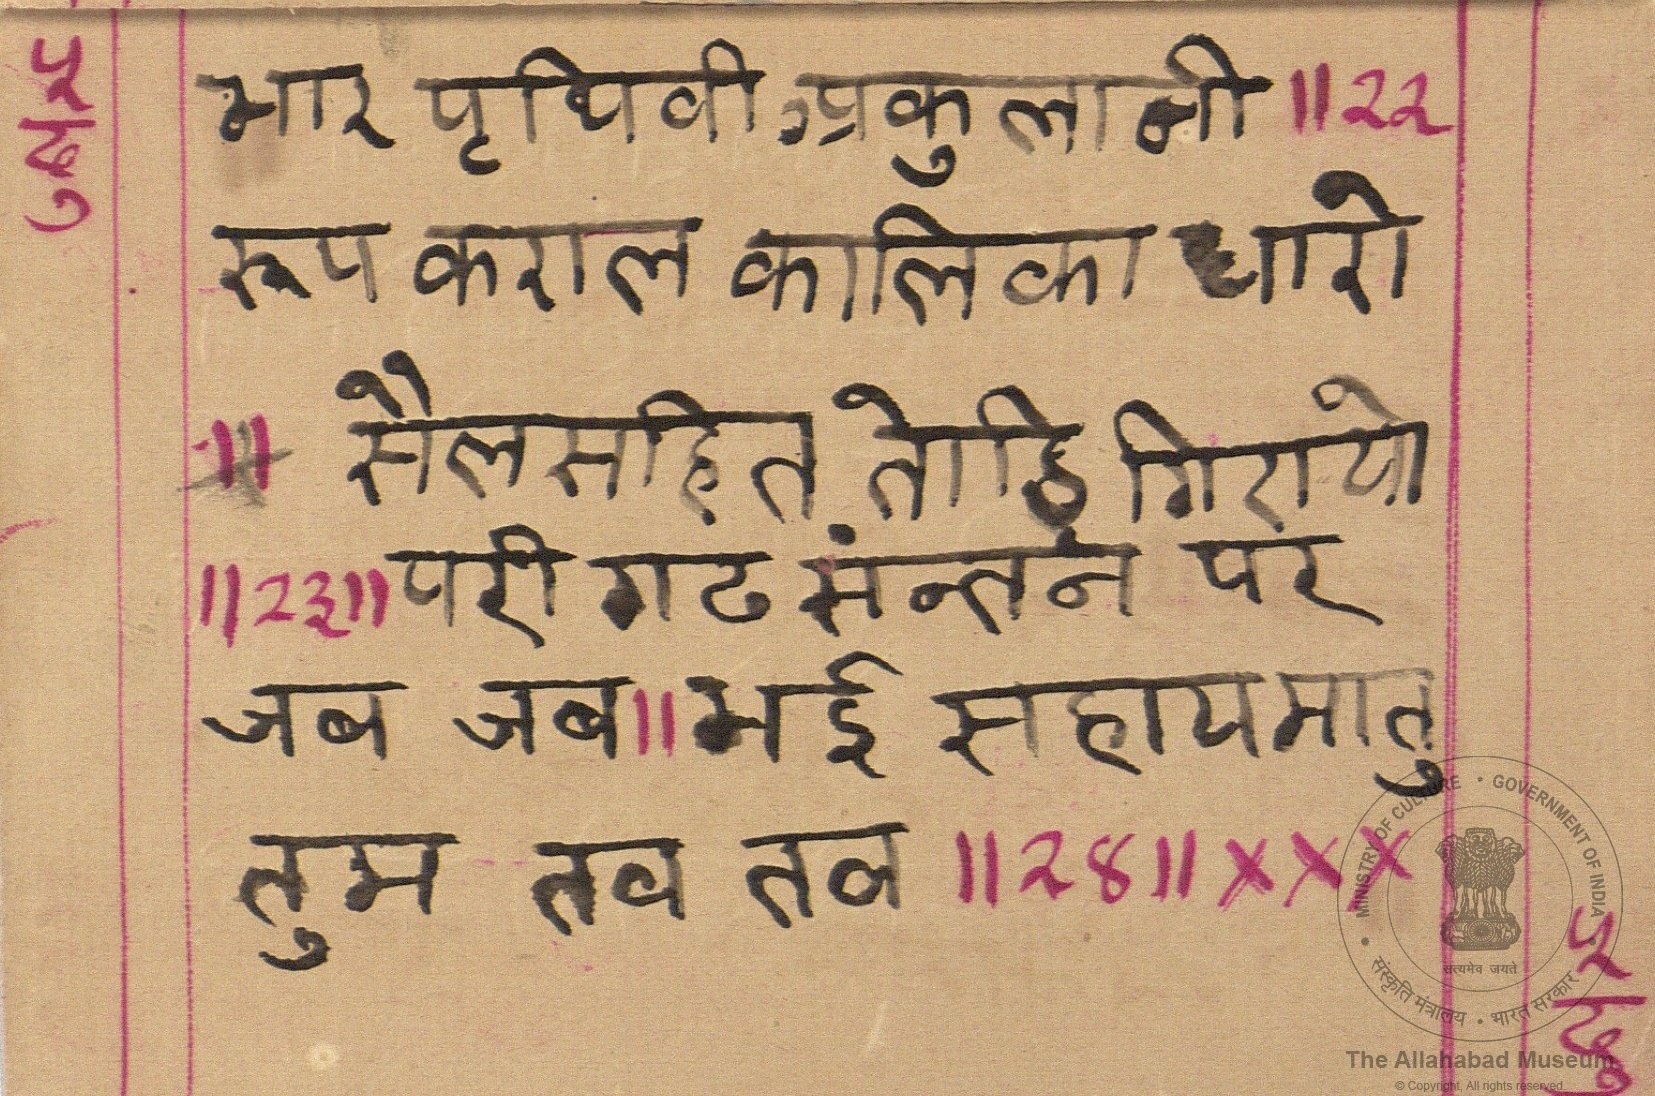 भार पृथिवी अकुलानी ॥२२
रूप कराल कालिका धारो
॥ सैलसहित तोहि गिरायो
॥२३॥ परी गाढ संन्तन पर
जब जब॥ भई सहायमातु
तुम तव तव ॥२४॥xxx
MINISTRY OF CULTURE • GOVERNMENT OF INDIA
सत्यमेव जयते
संस्कृति मंत्रालय • भारत सरकार
The Allahabad Museum
© Copyright, All rights reserved